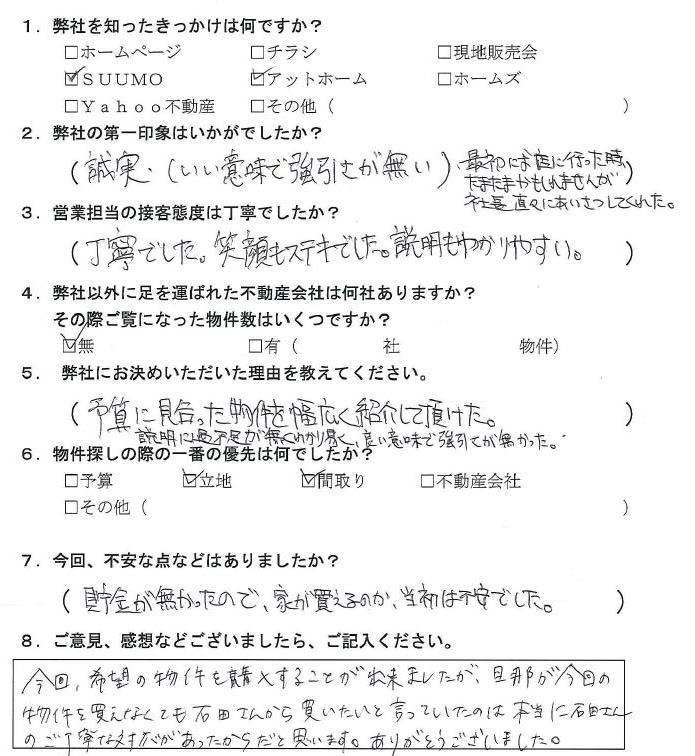 1．弊社を知ったきっかけは何ですか？
□ホームページ □チラシ □現地販売会
☑ＳＵＵＭＯ ☑アットホーム □ホームズ
□Ｙａｈｏｏ不動産 □その他（ ）
2．弊社の第一印象はいかがでしたか？
（誠実・（いい意味で強引さが無い）・最初にお店に行った時、
たまたまかもしれませんが）
社長直々にあいさつしてくれた。
3．営業担当の接客態度は丁寧でしたか？
（丁寧でした。笑顔もステキでした。説明もわかりやすい。）
4．弊社以外に足を運ばれた不動産会社は何社ありますか？
その際ご覧になった物件数はいくつですか？
☑無 □有（ 社 物件）
5． 弊社にお決めいただいた理由を教えてください。
（予算に見合った物件を幅広く紹介して頂けた。）
説明に過不足が無くわかり易く、良い意味で強引てが無かった。
6．物件探しの際の一番の優先は何でしたか？
□予算 ☑立地 ☑間取り □不動産会社
□その他（ ）
7．今回、不安な点などはありましたか？
（貯金が無かったので、家が買えるのか、当初は不安でした。）
8．ご意見、感想などございましたら、ご記入ください。
今回、希望の物件を購入することが出来ましたが、旦那が今回の
物件を買えなくても石田さんから買いたいと言っていたのは本当に石田さん
のご丁寧な対応があったからだと思います。ありがとうございました。